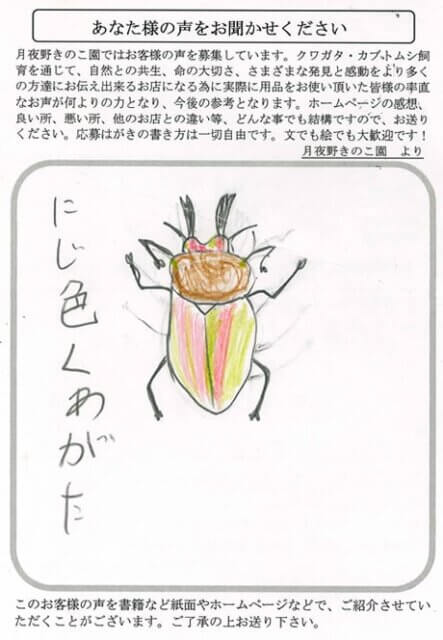 あなた様の声をお聞かせください
月夜野きのこ園ではお客様の声を募集しています。クワガタ・カブトムシ飼
育を通じて、自然との共生、命の大切さ、さまざまな発見と感動をより多く
の方達にお伝え出来るお店になる為に実際に用品をお使い頂いた皆様の率直
なお声が何よりの力となり、今後の参考となります。ホームページの感想、
良い所、悪い所、他のお店との違い等、どんな事でも結構ですので、お送り
ください。応募はがきの書き方は一切自由です。文でも絵でも大歓迎です！
月夜野きのこ園　より
にじ色くわがた
このお客様の声を書籍など紙面やホームページなどで、ご紹介させてい
ただくことがございます。ご了承の上お送り下さい。